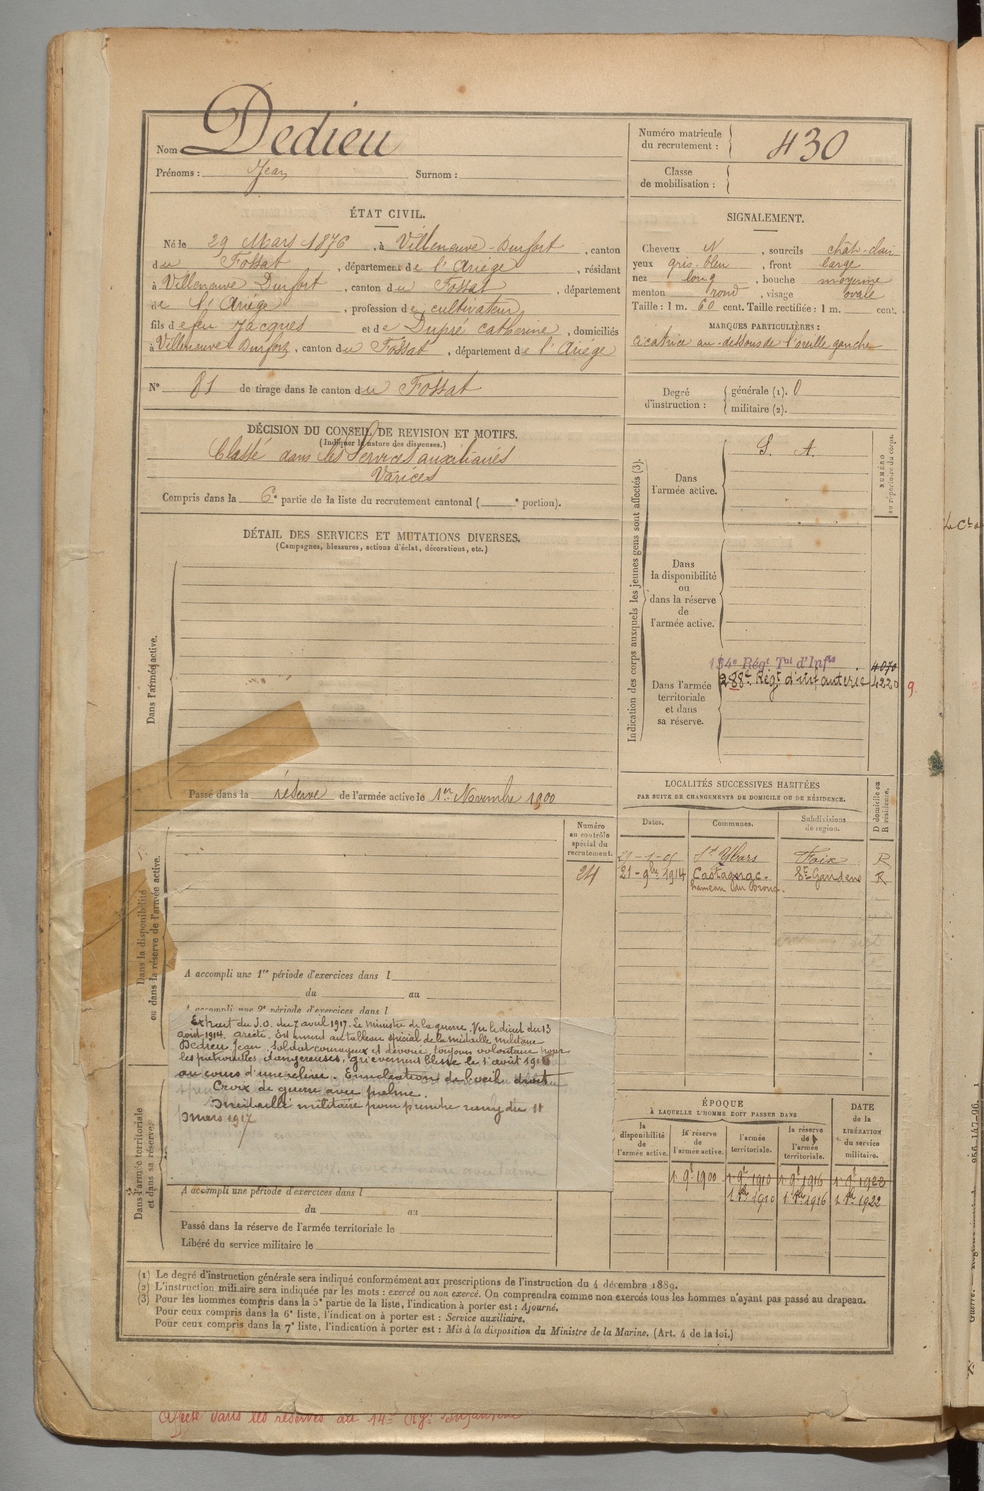 Nom Dedieu
Prénoms : Jean Surnom :
Numéro matricule du recrutement : 430
Classe de mobilisation :
ÉTAT CIVIL.
Né le 29 Mars 1876, à Villeneuve-Durfort, canton
du Fossat, département de l'Ariège, résidant
à Villeneuve Durfort, canton du Fossat, département
de l'Ariège, profession de cultivateur
fils de feu Jacques et de Dupré Catherine, domiciliés
à Villeneuve Durfort, canton du Fossat, département de l'Ariège
N° 81 de tirage dans le canton du Fossat
SIGNALEMENT.
Cheveux N, sourcils chât-clair
yeux gris-bleu, front large
nez long, bouche moyenne
menton rond, visage ovale
Taille : 1 m. 60 cent. Taille rectifiée : 1 m. cent.
MARQUES PARTICULIÈRES :
cicatrice au-dessous de l'oreille gauche
Degré d'instruction : générale (1). 0
militaire (2).
DÉCISION DU CONSEIL DE REVISION ET MOTIFS.
(Indiquer la nature des dispenses.)
Classé dans les Services auxiliaires
Varices
Compris dans la 6e partie de la liste du recrutement cantonal ( e portion).
DÉTAIL DES SERVICES ET MUTATIONS DIVERSES.
(Campagnes, blessures, actions d'éclat, décorations, etc.)
Dans l'armée active.
Passé dans la réserve de l'armée active le 1er Novembre 1900
Indication des corps auxquels les jeunes gens sont affectés (3).
NUMÉRO au répertoire du corps.
Dans l'armée active.
S. A.
Dans la disponibilité ou dans la réserve de l'armée active.
Dans l'armée territoriale et dans sa réserve.
134e Régt Tal d'Infie 4070
288e Régt d'infanterie 4220 9
LOCALITÉS SUCCESSIVES HABITÉES
PAR SUITE DE CHANGEMENTS DE DOMICILE OU DE RÉSIDENCE.
Dates. Communes. Subdivisions de région. D domicile ou R résidence.
St Ybars Foix R
21-9bre 1914 Castagnac. St Gaudens R
hameau
Numéro au contrôle spécial du recrutement.
24
Dans la disponibilité ou dans la réserve de l'armée active.
A accompli une 1re période d'exercices dans l
du au
A accompli une 2e période d'exercices dans l
Extrait du J.O. du 7 avril 1917. Le ministre de la guerre. Vu le décret du 13
août 1914 arrête. Est inscrit au tableau spécial de la médaille militaire
Dedieu Jean, soldat courageux et dévoué, toujours volontaire pour
les patrouilles dangereuses, grièvement blessé le 1er août 1916
au cours d'une relève. Enucléation de l'œil droit
Croix de guerre avec palme.
Médaille militaire pour prendre rang du 11
mars 1917
Dans l'armée territoriale et dans sa réserve.
A accompli une période d'exercices dans l
du au
Passé dans la réserve de l'armée territoriale le
Libéré du service militaire le
ÉPOQUE
À LAQUELLE L'HOMME DOIT PASSER DANS
DATE de la LIBÉRATION du service militaire.
la disponibilité de l'armée active. la réserve de l'armée active. l'armée territoriale. la réserve de l'armée territoriale.
1 9e 1900 1 9e 1910 1 9e 1916 1 9e 1922
1 1910 1 1916 1 1922
(1) Le degré d'instruction générale sera indiqué conformément aux prescriptions de l'instruction du 4 décembre 1889.
(2) L'instruction militaire sera indiquée par les mots : exercé ou non exercé. On comprendra comme non exercés tous les hommes n'ayant pas passé au drapeau.
(3) Pour les hommes compris dans la 5e partie de la liste, l'indication à porter est : Ajourné.
Pour ceux compris dans la 6e liste, l'indication à porter est : Service auxiliaire.
Pour ceux compris dans la 7e liste, l'indication à porter est : Mis à la disposition du Ministre de la Marine. (Art. 4 de la loi.)